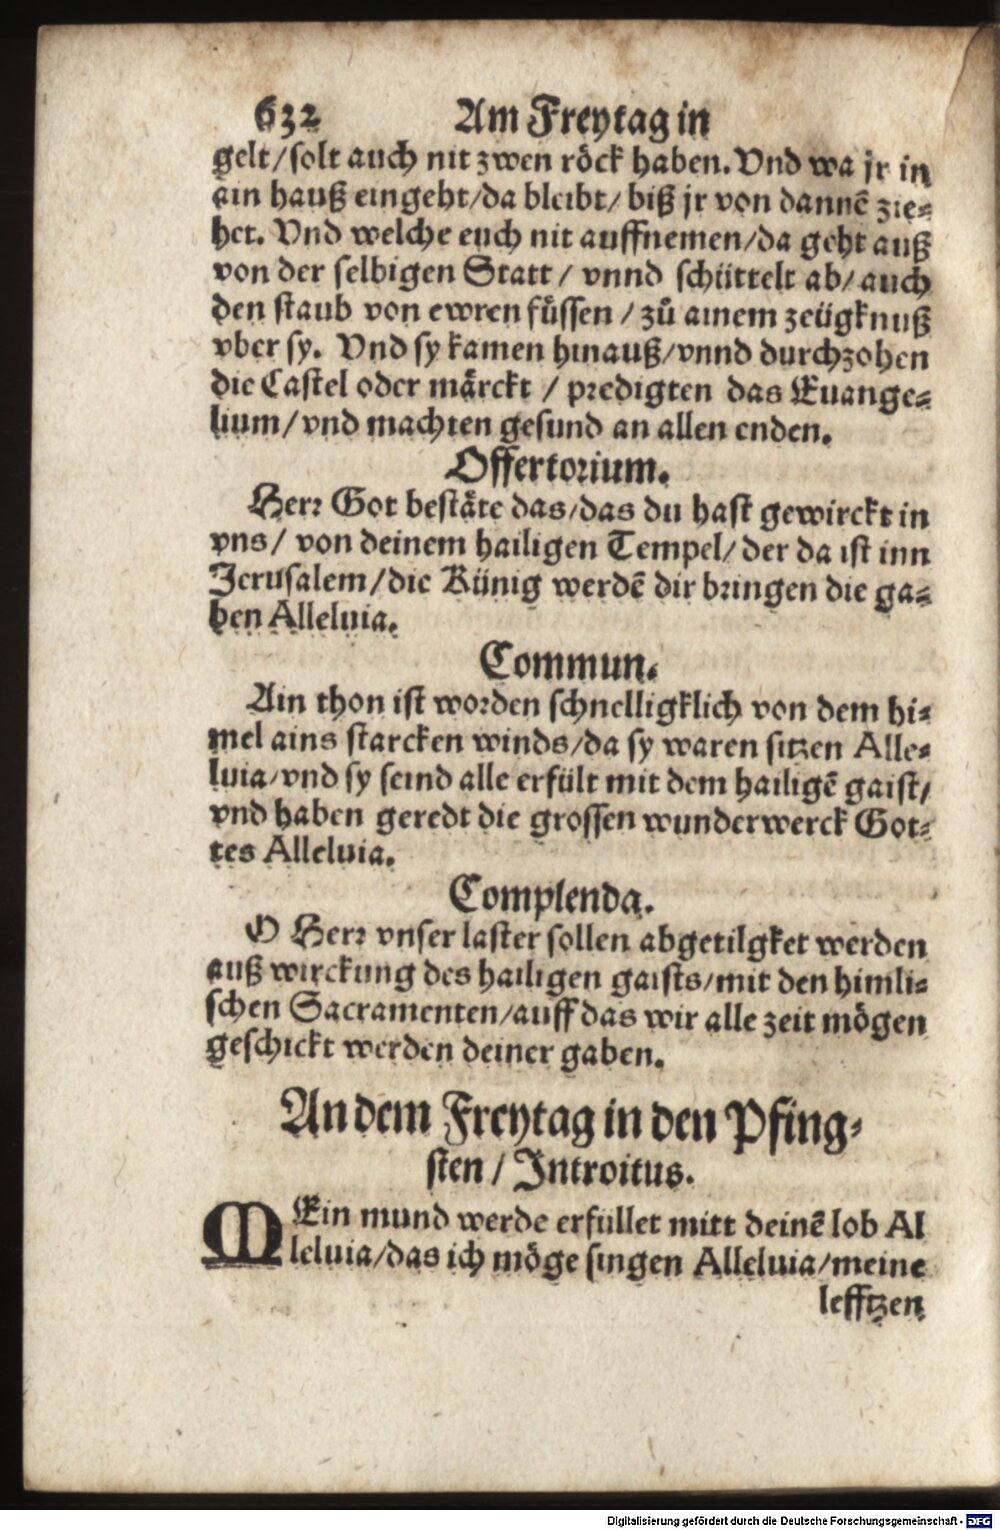 632 Am Freytag in
gelt/solt auch nit zwen röck haben. Vnd wa jr in
ain hauß eingeht/da bleibt/ biß jr von dannē zie=
het. Vnd welche euch nit auffnemen/da geht auß
von der selbigen Statt / vnnd schüttelt ab/auch
den staub von ewren füssen / zů ainem zeügknuß
vber sy. Vnd sy kamen hinauß/vnnd durchzohen
die Castel oder märckt / predigten das Euange=
lium/vnd machten gesund an allen enden.
Offertorium.
Herr Got bestäte das/das du hast gewirckt in
vns/ von deinem hailigen Tempel/ der da ist inn
Jerusalem/die Künig werdē dir bringen die ga=
ben Alleluia.
Commun.
Ain thon ist worden schnelligklich von dem hi=
mel ains starcken winds/da sy waren sitzen Alle=
luia/vnd sy seind alle erfült mit dem hailigē gaist/
vnd haben geredt die grossen wunderwerck Got=
tes Alleluia.
Complenda.
O Herr vnser laster sollen abgetilgket werden
auß wirckung des hailigen gaists/mit den himli=
schen Sacramenten/auff das wir alle zeit mögen
geschickt werden deiner gaben.
An dem Freytag in den Pfing=
sten / Introitus.
MEin mund werde erfüllet mitt deinē lob Al
leluia/das ich möge singen Alleluia/meine
lefftzen
Digitalisierung gefördert durch die Deutsche Forschungsgemeinschaft - DFG